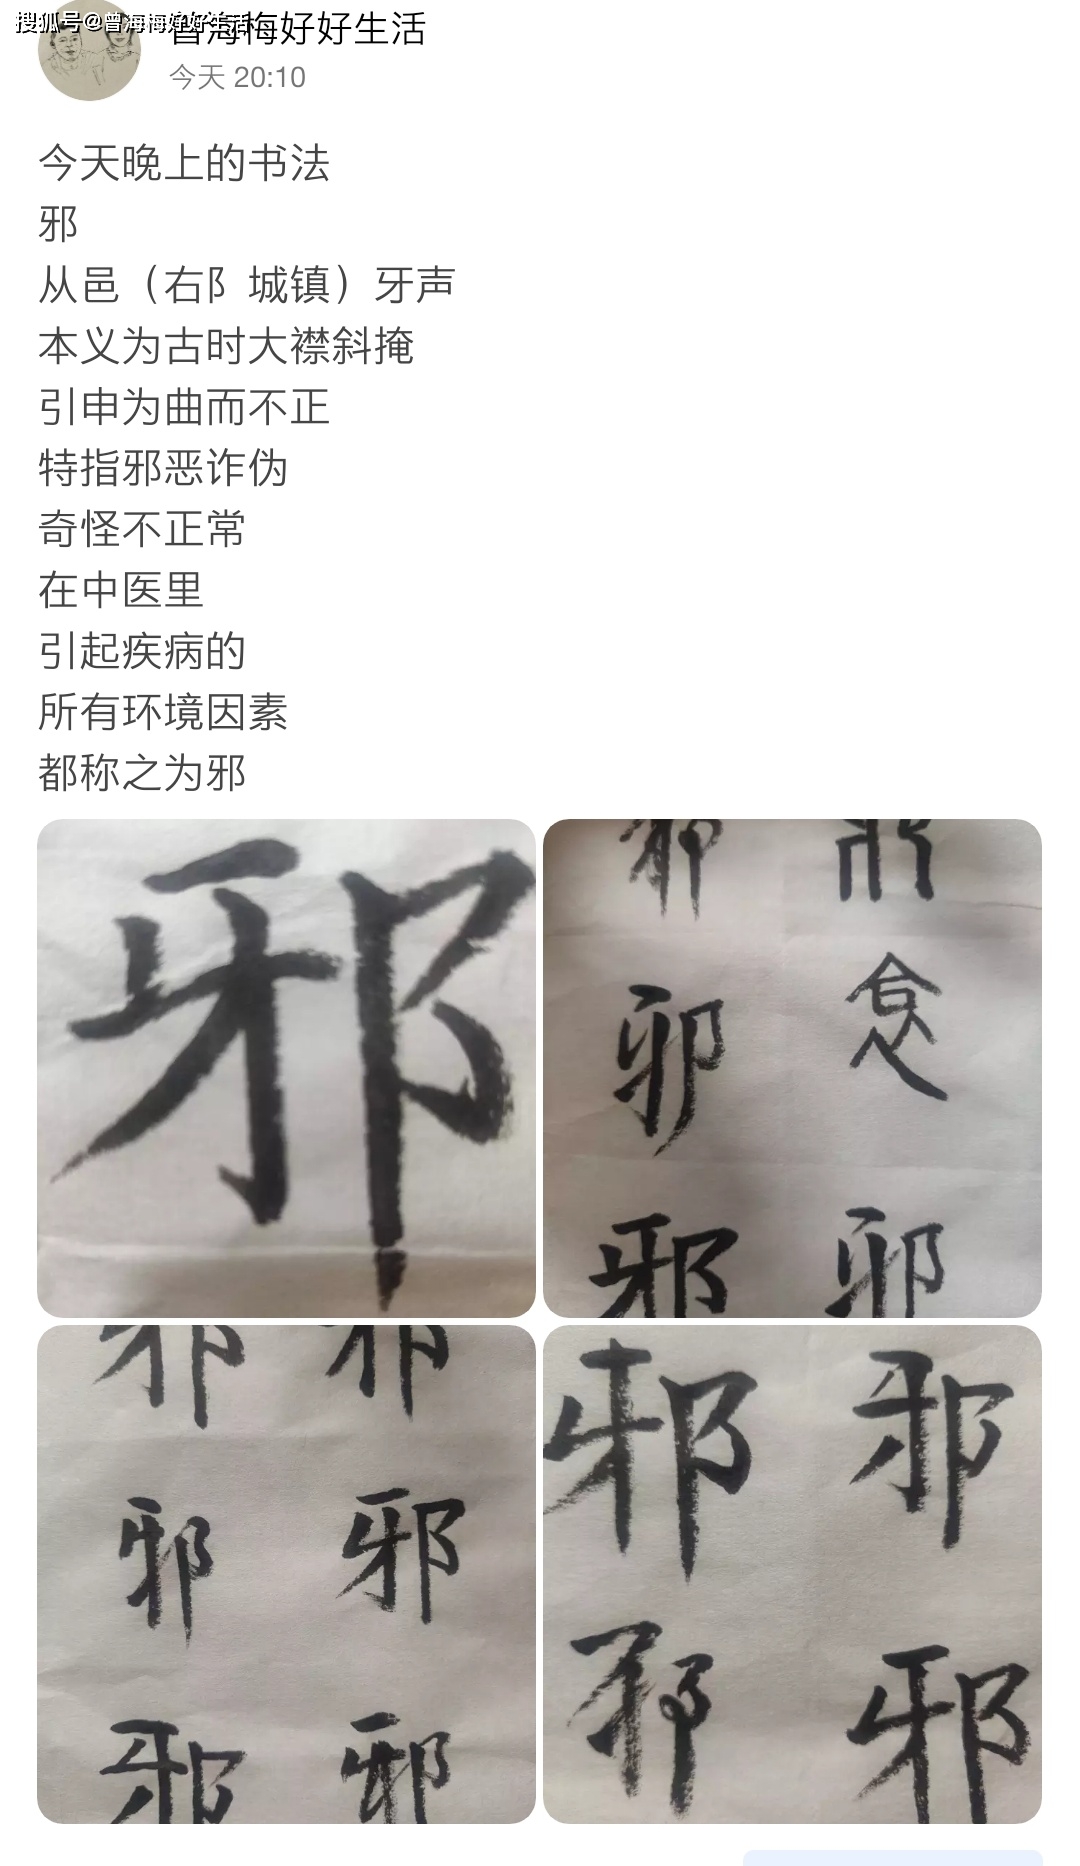 搜狐号@曾海梅好好生活
曾海梅好好生活
今天 20:10
今天晚上的书法
邪
从邑（右阝城镇）牙声
本义为古时大襟斜掩
引申为曲而不正
特指邪恶诈伪
奇怪不正常
在中医里
引起疾病的
所有环境因素
都称之为邪
邪
邪
邪
邪 邪
邪 邪
邪 邪
邪 邪
邪 邪
邪 邪